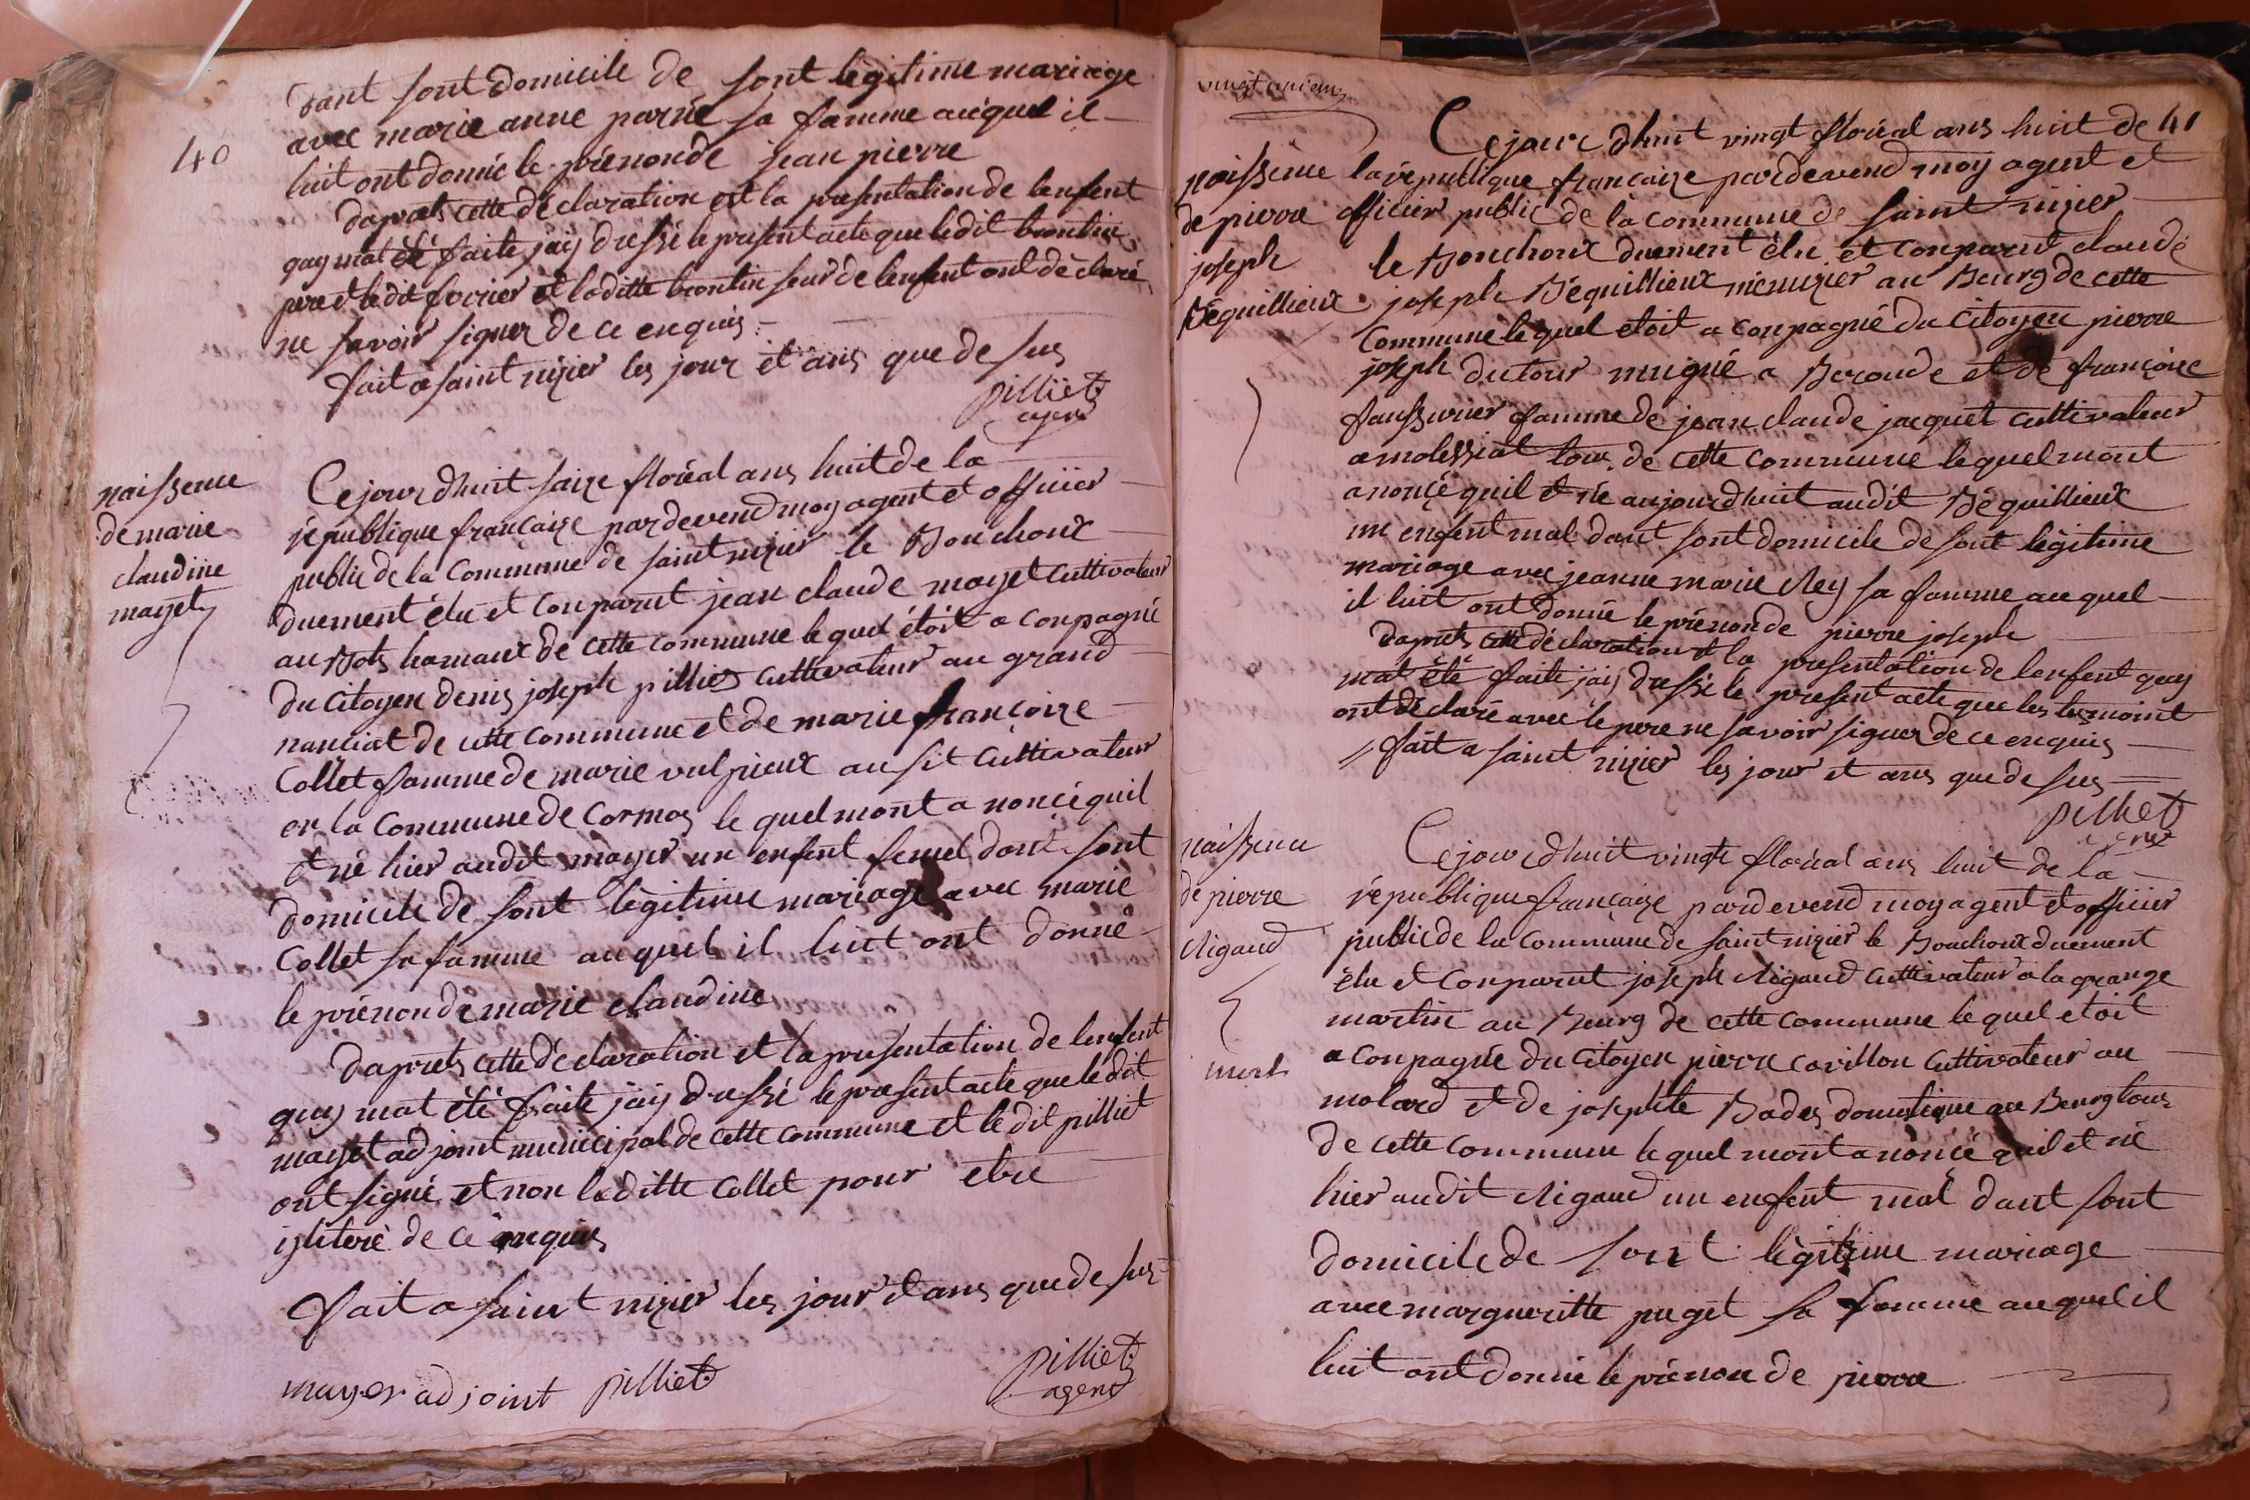 40
dant sont domicile de sont légitime mariage
avec marie anne parné sa famme auquel il
luit ont donné le prénonde jean pierre
daprets cette déclaration et la presentation de lenfent
quoy mat été faite jaij dressé le present acte que ledit brontin
pere et ledit favrier et laditte brontin seur de lenfent ont déclaré
ne savoir signer de ce enquis
fait a saint nizier les jour et ans que de sus
pilliet
agent
naissence
de marie
claudine
mayet
Cejourdhuit saize floréal ans huit de la
république française pardevend moy agent et officier
public de la Commune de saint nizier le Bouchoux
duement élu et Conparut jean claude mayet cultivateur
au Bots hamaux de cette commune lequel étoit a conpagné
du Citoyen denis joseph pilliet cultivateur au grand
nanciat de cette commune et de marie françoize
Collet famme de marie vulpieux au sit Cultivateur
en la Commune de Cormos le quel mont a noncé quil
et né hier audit mayer un enfent femel dont sont
domicile de sont légitime mariage avec marie
Collet sa famme auquel il luit ont donné
le prénonde marie claudine
daprets cette déclaration et la presentation de lenfent
quoy mat été faite jaij dressé le present acte que ledit
mayet adjoint municipal de cette commune et le dit pilliet
ont signé et non laditte Collet pour etre
iliteré de ce enquis
fait a saint nizier les jour et ans que de sus
mayer adjoint pilliet
pilliet
agent
41
naissence
de pierre
joseph
Béquillieux
Cejour dhuit vingt floréal ans huit de
la république françaize pardevend moy agent et
officier public de la commune de saint nizier
le Bouchoux duement élu et conparut claude
joseph Béquillieux menuzier au Bourg de cette
Commune le quel etoit a conpagné du Citoyen pierre
joseph dutour mugné a Bcroude et de françoize
famme de jean claude jacquet cultivateur
a molessiat tous de cette commune lequel mont
anoncé quil et né aujourdhuit audit Béquillieux
un enfent mal dant sont domicile de sont légitime
mariage avec jeanne marie Rey sa famme auquel
il luit ont donné le prénonde pierre joseph
daprets cette déclaration et la presentation de lenfent quoy
mat été faite jaij dressé le present acte que les tesmoint
ont déclaré avec le pere ne savoir signer de ce enquis
fait a saint nizier les jour et ans que de sus
pilliet
naissence
de pierre
Rigaud
mort
Cejourdhuit vingt floréal ans huit de la
république françaize pardevend moy agent et officier
public de la commune de saint nizier le Bouchoux duement
élu et Conparut joseph Rigaud cultivateur a la grange
martin au Bourg de cette commune le quel etoit
a conpagné du Citoyen pierre cavillon cultivateur au
molard et de josephte Badez domestique au Bourg tous
de cette commune lequel mont anoncé quil et né
hier audit Rigaud un enfent mal dant sont
domicile de sont légitime mariage
avec margueritte puget sa famme auquel il
luit ont donné le prénon de pierre